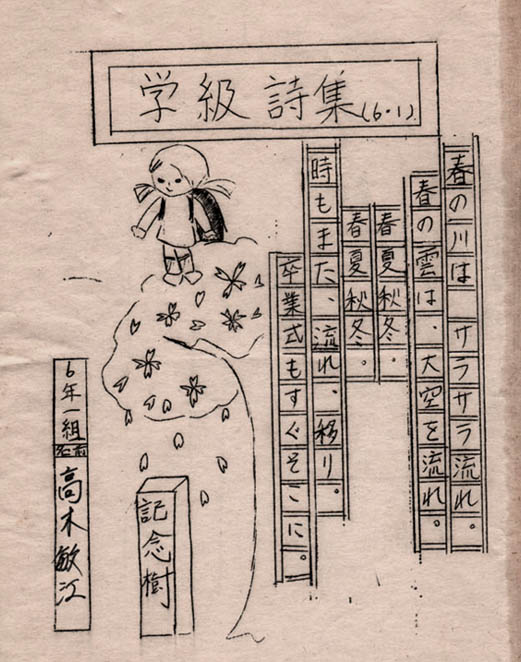 学級詩集(6・1)
春の川は サラサラ流れ。
春の雲は、大空を流れ。
春夏秋冬.
春夏秋冬。
時もまた、流れ、移り。
卒業式もすぐそこに。
記念樹
6年一組 名前 高木敏江